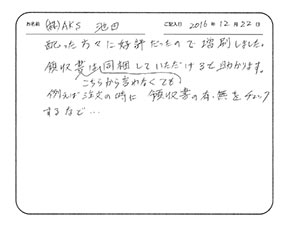 お名前 (株)AKS 池田 ご記入日 2016年12月22日
配った方々に好評だったので増刷しました。
領収書は同梱していただけると助かります。
こちらから言わなくても
例えば注文の時に 領収書の有・無をチェック
するなど…